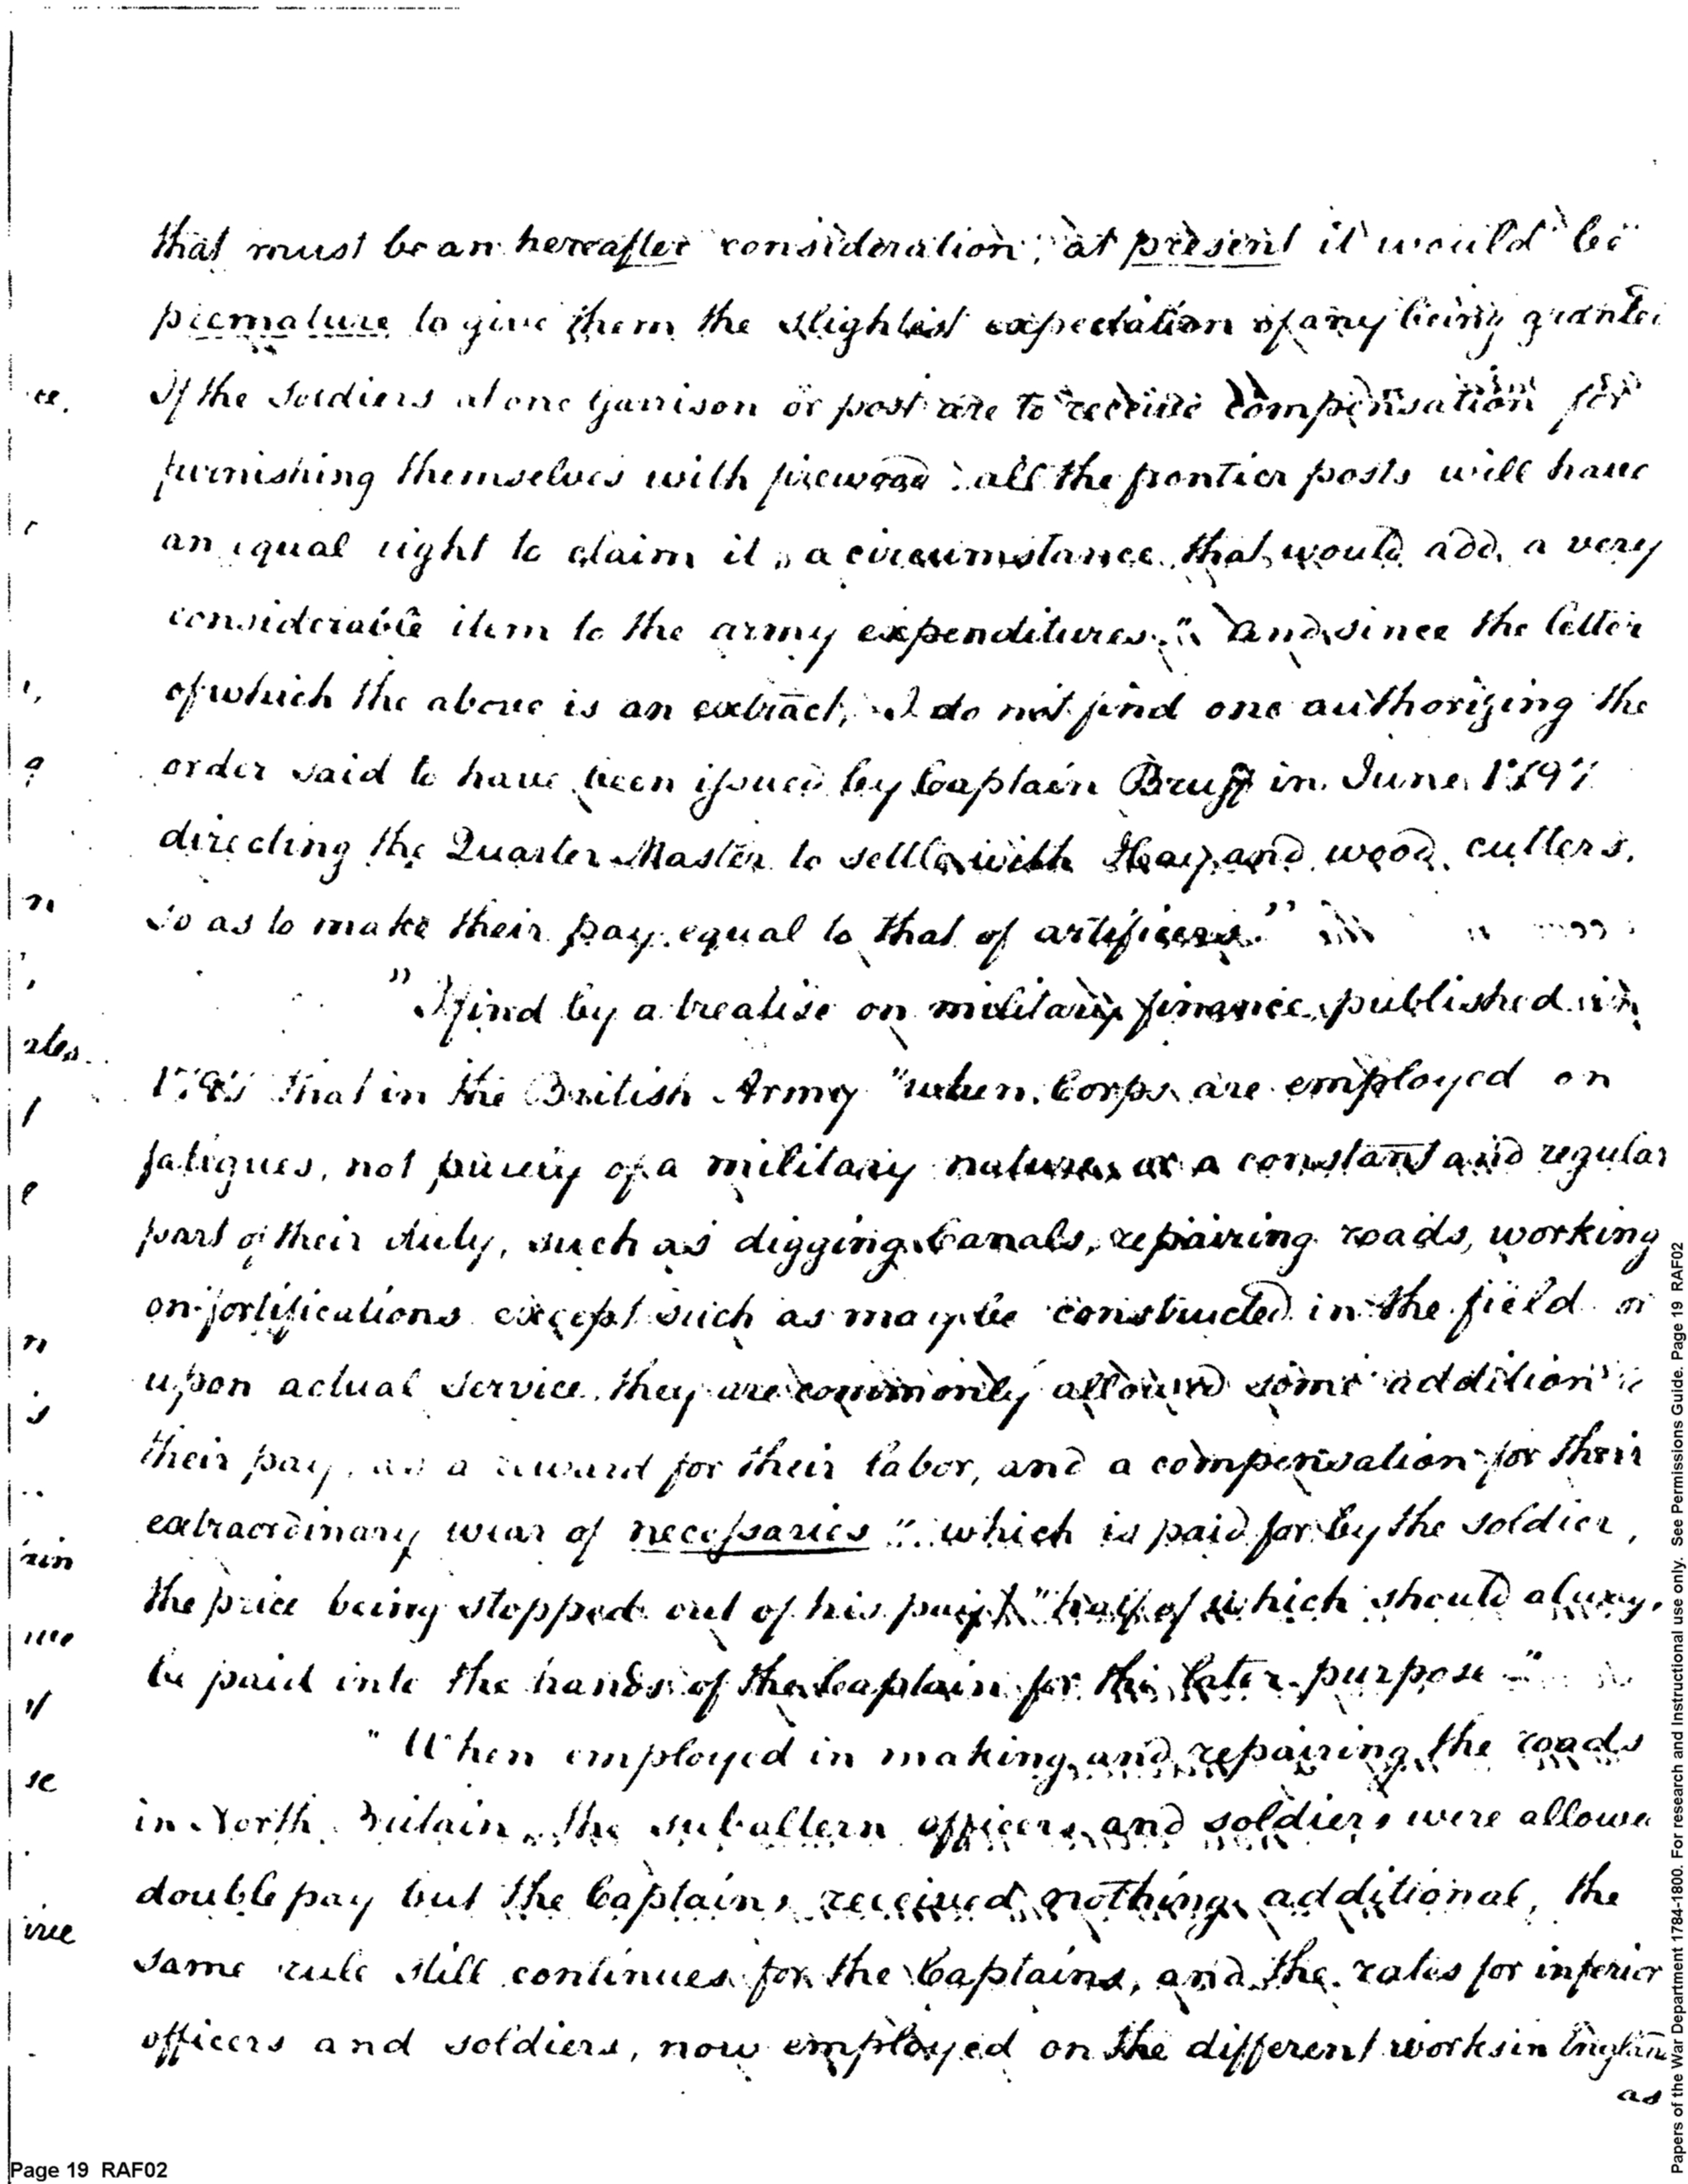 that must be an hereafter consideration, at present it would be
premature to give them the slightest expectation of any being grante
If the Soldiers at one Garrison or post are to receive compensation for
furnishing themselves with firewood all the frontier posts will have
an equal right to claim it, a circumstance that would add a very
considerable item to the army expenditures." And since the letter
of which the above is an extract, I do not find one authorizing the
order said to have been issued by Captain Bruff in June 1797
directing the Quarter Master to settle with Hay and wood cutters,
so as to make their pay equal to that of artificers."
"I find by a treatise on military finance, published in
that in the British Army "when Corps are employed on
fatigues, not purely of a military nature, or a constant and regular
part of their duty, such as digging Canals, repairing roads, working
on fortifications except such as may be constructed in the field or
upon actual service, they are commonly allowed some addition
their pay, as a reward for their labor, and a compensation for their
extraordinary wear of necessaries" which is paid for by the soldier,
the price being stopped out of his pay "half of which should always
be paid into the hands of the Captain for the later purpose"
"When employed in making and repairing the roads
in North Britain, the subaltern officers and soldiers were allowe
double pay but the Captains received nothing additional, the
same rule still continues for the Captains, and the rates for inferior
officers and soldiers, now employed on the different works in Englan
as
Page 19 RAF02
Papers of the War Department 1784-1800. For research and Instructional use only. See Permissions Guide. Page 19 RAF02